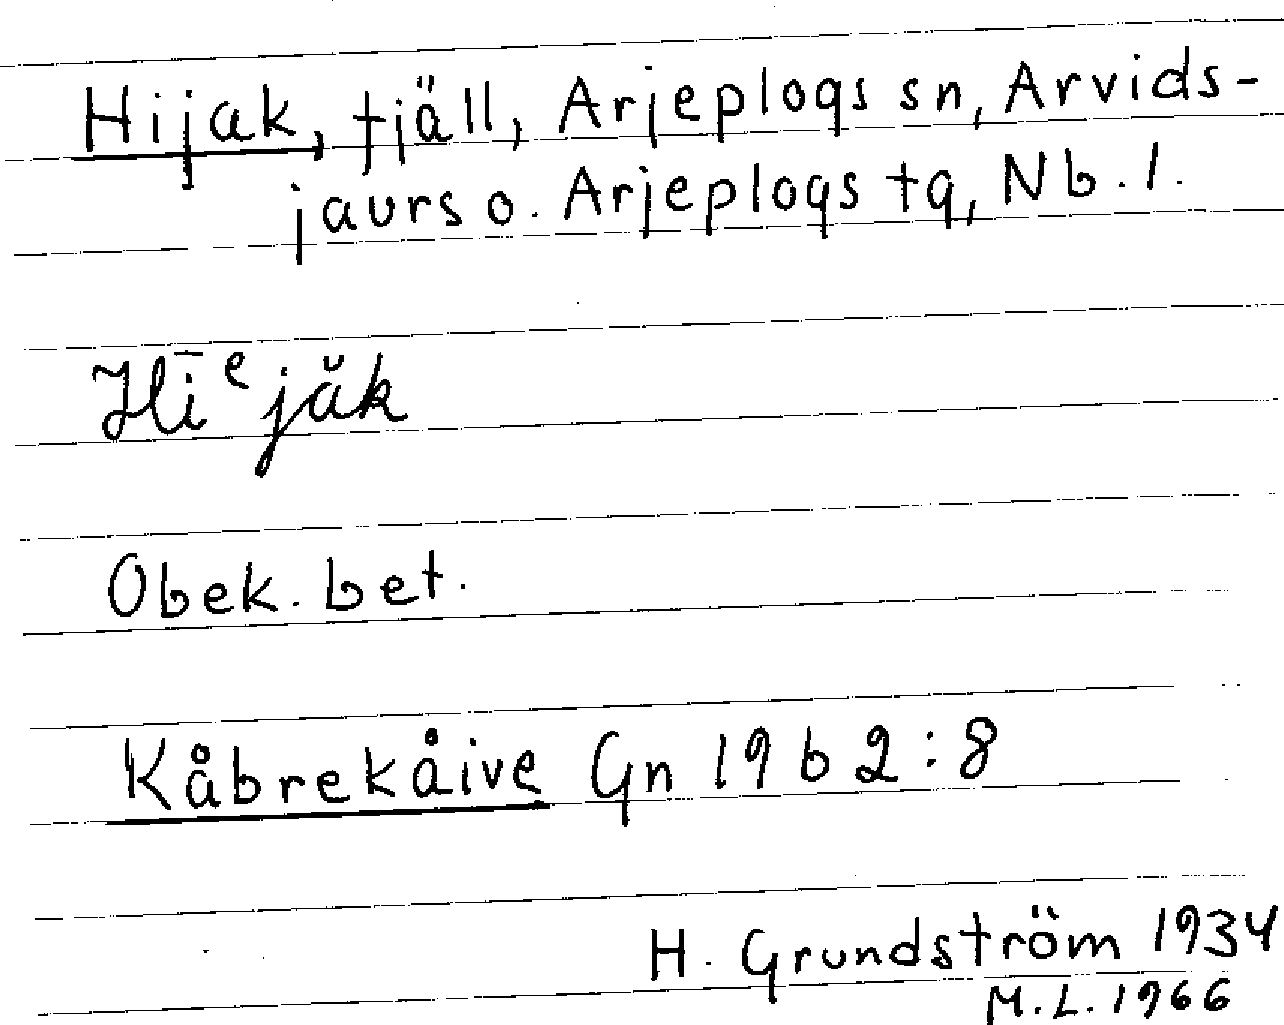 Hijak, fjäll, Arjeplogs sn, Arvids-
jaurs o. Arjeplogs tg, Nb. l.
Hī ͤjăk
Obek. bet.
Kåbrekåive Gn 1962:8
H. Grundström 1934
M.L. 1966